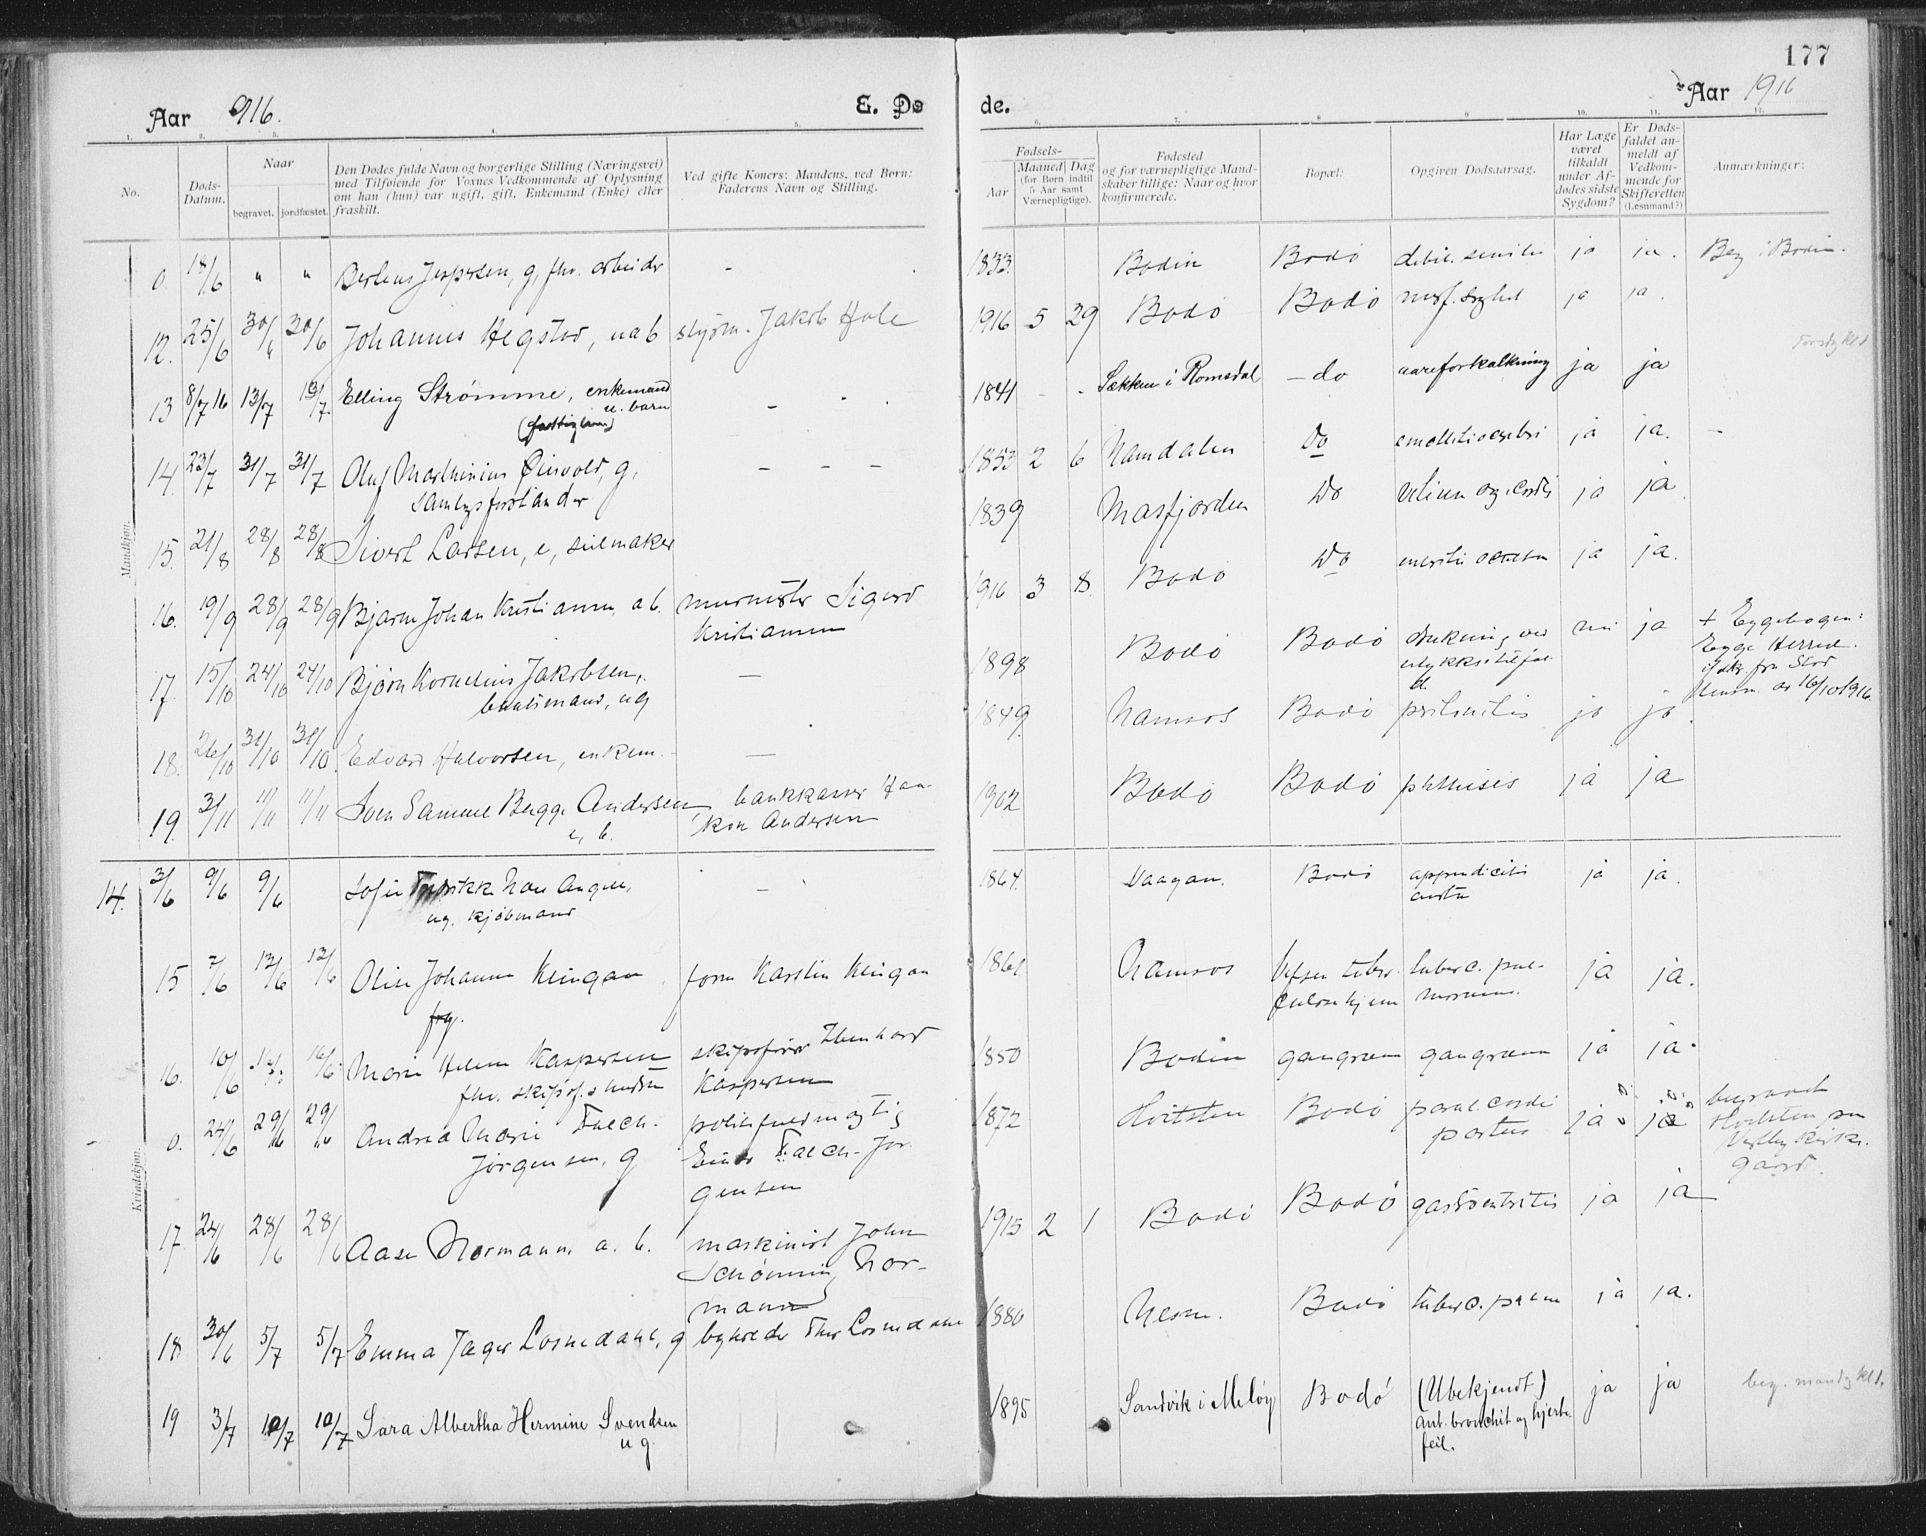 177
Aar 916.
E. Døde.
Aar 1916
1. 2. 3. 4. 5. 6. 7. 8 9 10. 11. 12.
No.
Døds-Datum.
Naar
begravet. jordfæstet.
Den Dødes fulde Navn og borgerlige Stilling (Næringsvei)
med Tilføiende for Voxnes Vedkommende af Oplysning
om han (hun) var ugift, gift, Enkemand (Enke) eller
fraskilt.
Ved gifte Koners: Mandens, ved Børn:
Faderens Navn og Stilling.
Fødsels-
Aar Maaned Dag
(for Børn indtil
5 Aar samt
Værnepligtige).
Fødested
og for værnepligtige Mand-
skaber tillige: Naar og hvor
konfirmerede.
Bopæl:
Opgiven Dødsaarsag.
Har Læge
været
tilkaldt
under Af-
dødes sidste
Sygdom?
Er Døds-
faldet an-
meldt af
Vedkom-
mende for
Skifteretten
(Lensmand?)
Anmærkninger:
Mandkjøn.
0. 18/6 " " Jespersen, g, fhv. arbeider - 1833. Bodin Bodø debil. senilis ja ja. Beg i Bodin.
12. 25/6 30/6 30/6 Johannes Hegstad, uab styrm. Jakob Hole 1916 5 29 Bodø Bodø ja ja.
13 8/7 16 13/7 13/7. Elling Strømme, enkemand 1841 - - Sekken i Romsdal - do aareforkalkning ja ja
u. barn
14. 23/7 31/7 31/7 Oluf Marthinius g, - - - 1853 2 6 Namdalen Do ja ja. -
15. 21/8 28/8 28/8 Sivert Larsen, e, seilmaker 1839 Masfjorden Do cordis ja ja
16. 19/9 28/9 28/9 Bjarne Johan Kristiansen a b. murmester Sigurd
Kristiansen 1916 3 8. Bodø Do ja ja.
17. 15/10 24/10 24/10 Bjørn Kornelius Jakobsen,
baatsmand, ug - 1898 Bodø Bodø drukning ved
ulykkestilfæl-
de. nei ja + Eggebogen:
Egge Herred.
16/10 1916
18. 26/10 31/10 31/10 Edvard Halvorsen, enkem. - 1849 Namsos Bodø peritonitis ja ja.
19. 3/11 11/11 11/11 Sven Samuel Bugge Andersen
e, b. bankkasser Haa-
kon Andersen 1902 Bodø Bodø phthisis ja ja
Kvindekjøn.
14. 3/6 9/6 9/6 Sofie Angell,
ug. kjøbmand - 1864. Vaagan. Bodø appendicitis ja ja.
15 7/6 13/6 13/6 Oline Johanne Klingan form Karstin Klingan 1861 Namsos tuberc. pul-
monum. ja ja.
16. 10/6 Marie Helene Kaspersen
fhv. skipsf. skipsfører Ebenhard
Kaspersen 1850 Bodin gangræn gangræn ja ja.
0. 24/6 29/6 29/6 Andrea Marie Falch-
Jørgensen, g politifuldmægtig
Falch-Jør
gensen 1872 Hvitsten Bodø paral. cordis
partus ja ja begravet
Hvitsten paa
Vestby kirke-
gaard.
17. 24/6 28/6 28/6 Aase Normann a. b. maskinist John
Schønning Nor-
mann 1915 2 1 Bodø Bodø gastroenteritis ja ja
18 30/6 5/7 5/7 Emma Jæger Losnedahl, g Thor Losnedahl 1880 Nesna. Bodø tuberc. pulm ja ja.
19 3/7 10/7 10/7 Sara Albertha Hermine Svendsen
ug. 1895 Sandvik i Meløy Bodø (Ubekjendt)
Ant. bronchit og hjerte-
feil. ja ja